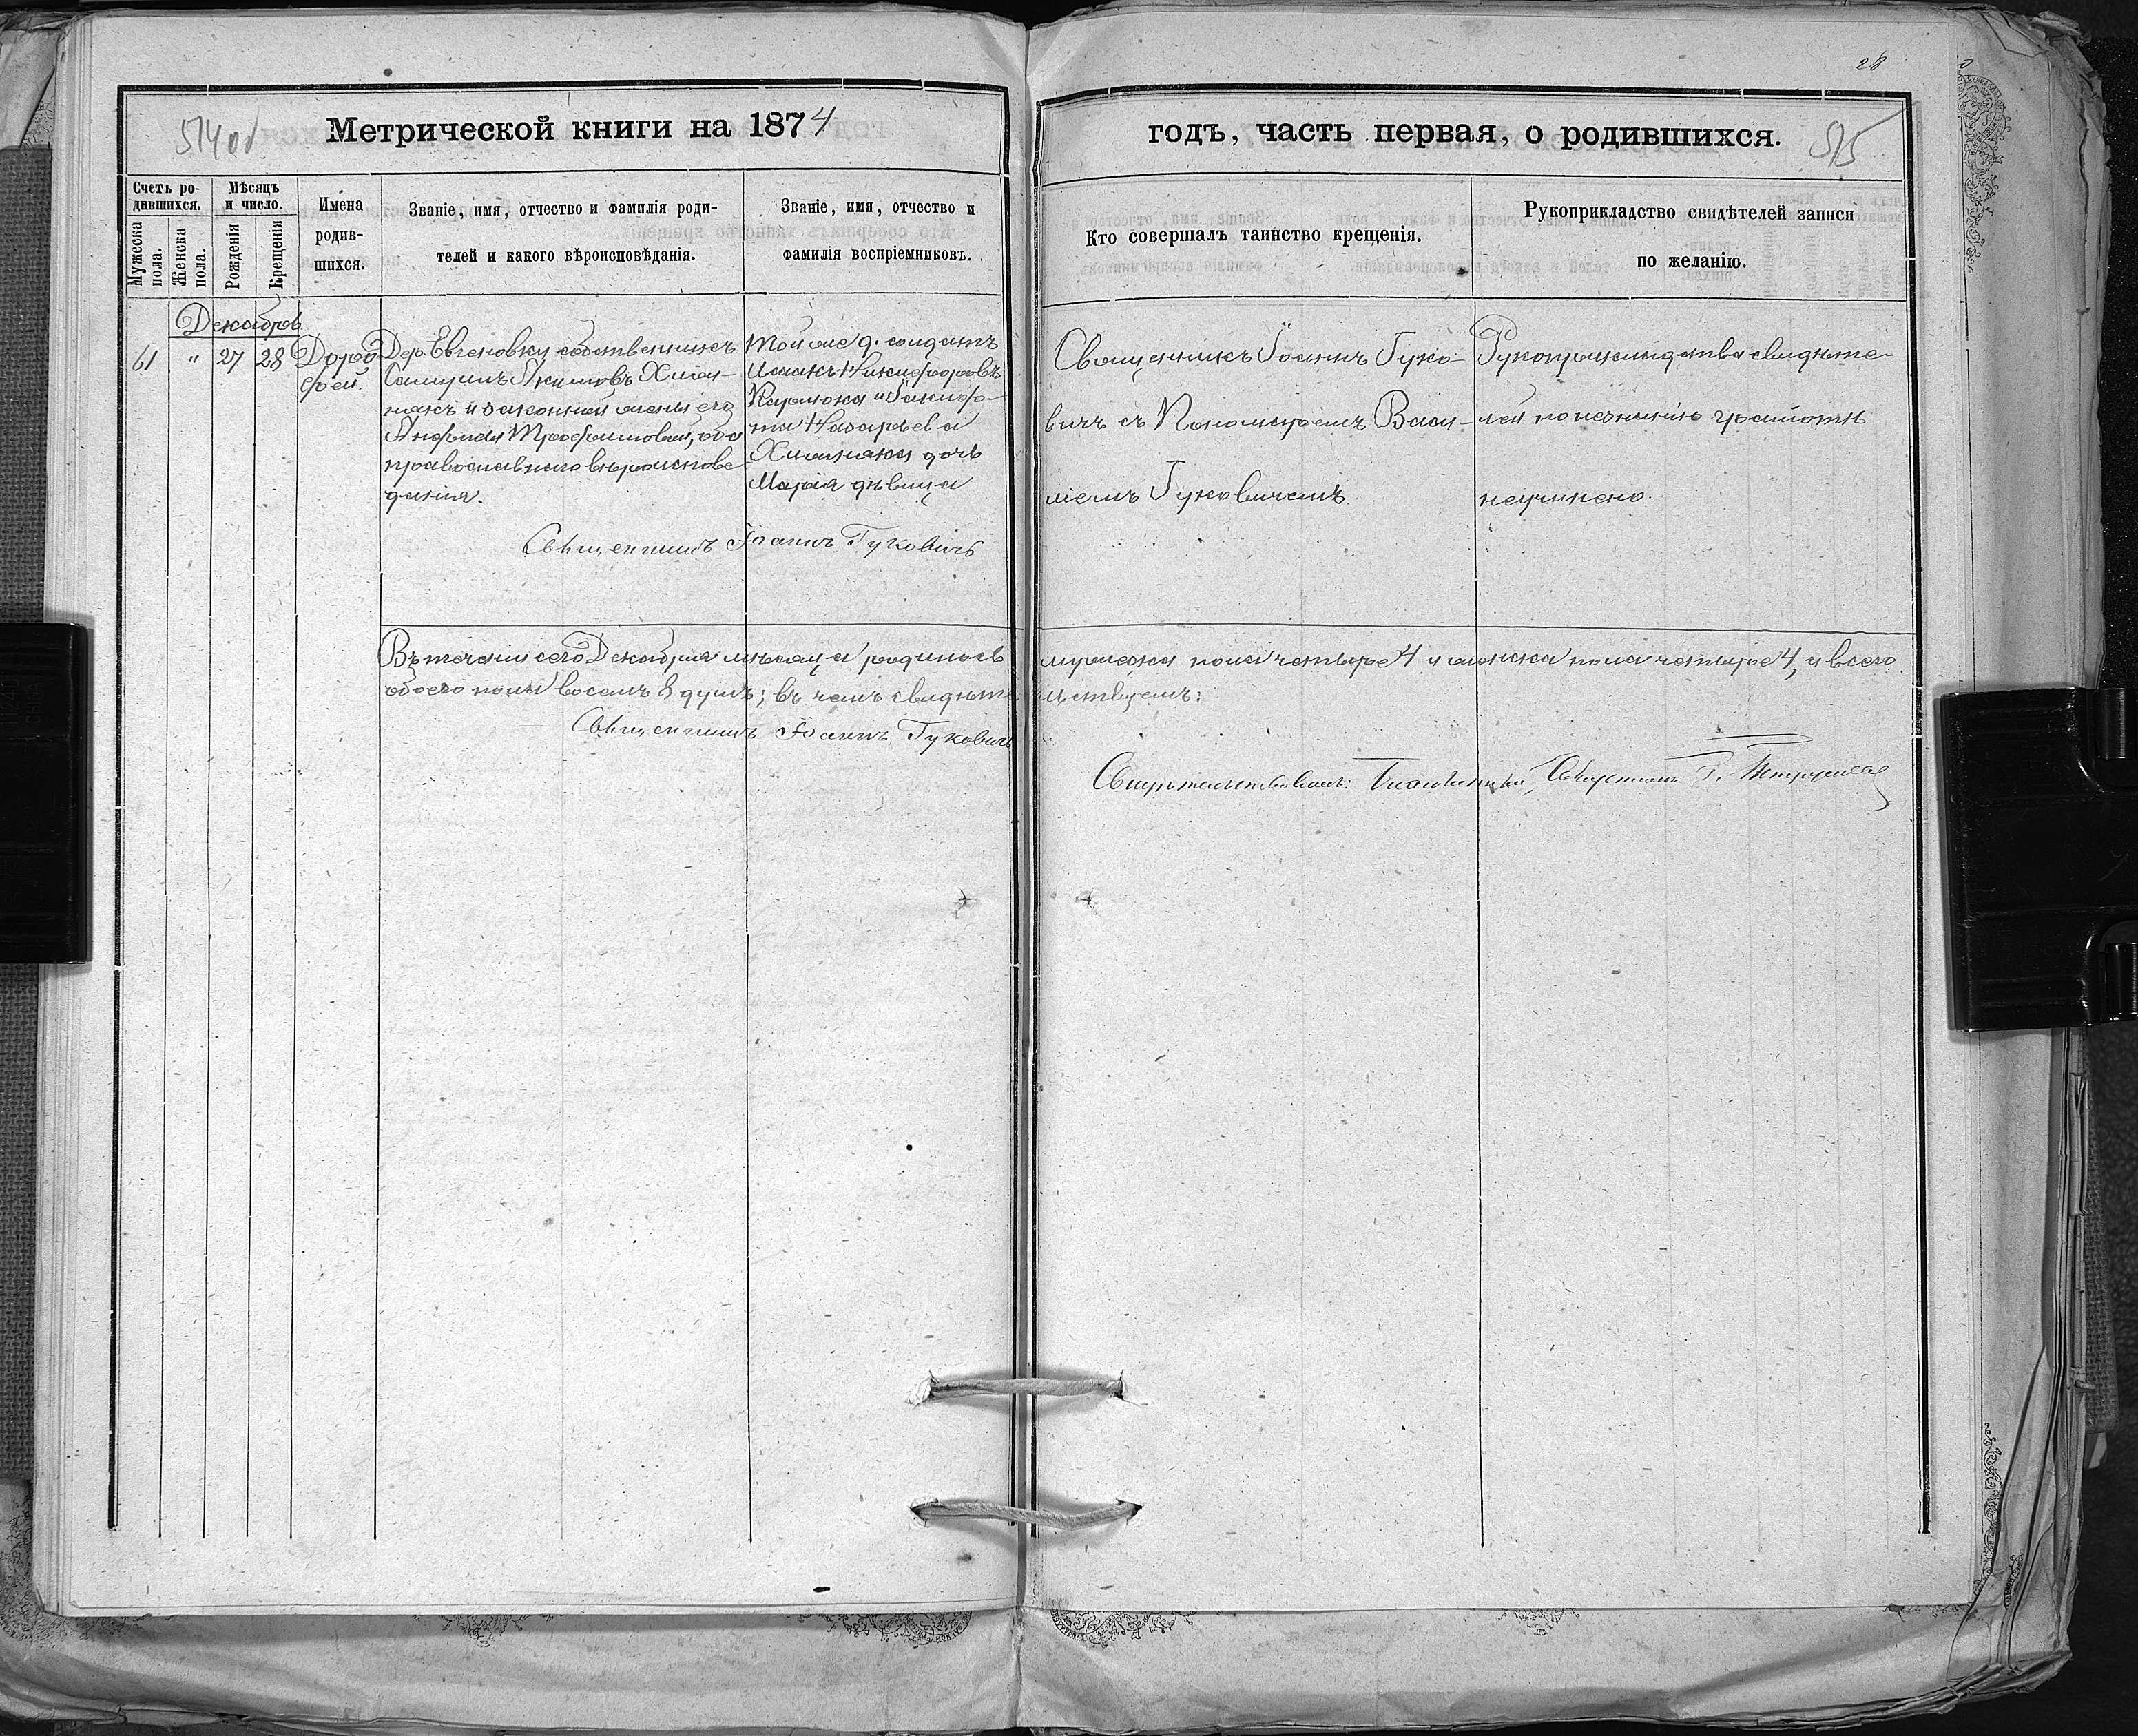 28
514 об
Метрической книги на 1874
годъ, часть первая, о родившихся.
515
Счетъ ро-
дившихся.
Мужеска пола.
Женска пола.
Мѣсяцъ
и число.
Рожденія
Крещенія
Имена
родив-
шихся.
Званіе, имя, отчество и фамилія роди-
телей и какого вѣроисповѣданія.
Званіе, имя, отчество и
фамилія воспріемниковъ.
Кто совершалъ таинство крещенія.
Рукоприкладство свидѣтелей записи
по желанію.
Декабрь
61 " 27 28
Доро
фей.
Дер. Евгеновки собственникъ
Самуилъ Якимовъ Хмѣл-
накъ и законной жены его
Трофимовой, оба
православнаго вѣроиспове
данія.
Той же д. солдатъ
Исаакъ Никифоровъ
Карлюка и
Назарьева
дочь
Марія дѣвица
Священникъ Іоаннъ Гуковичъ
Священникъ Іоаннъ Гуко-
вичъ съ Пономаремъ Васи-
ліемъ Гуковичемъ.
Рукоприкладства свидѣте-
лей по незнанію грамоты
неучинено.
Въ теченіи сего Декабря мѣсяца родилось мужеска пола четыре 4 и женска пола четыре 4, а всего
обоего пола восемъ 8 душъ; въ чемъ свидѣтельствуемъ:
Священникъ Іоаннъ Гуковичъ
Свидѣтельствовалъ: Благочинный, Священникъ Г.